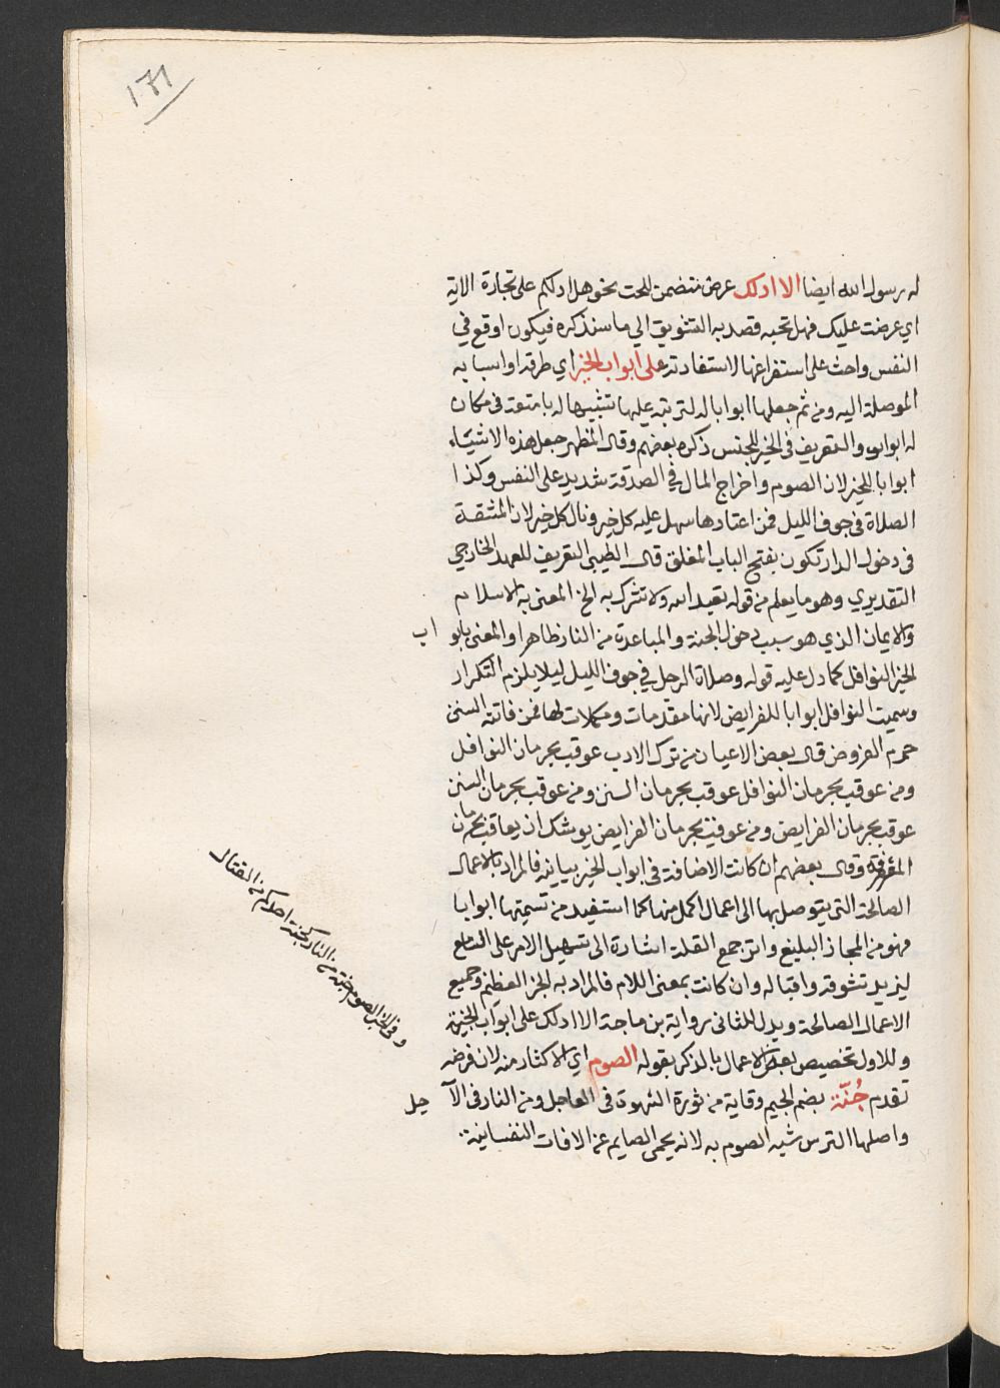 ١٣١
له رسول الله ايضا الا ادلك عرض متضمن للحث نحو هل ادلكم على تجارة الاية
اي عرضت عليك فهل تحبه قصد به التشويق الي ما سنذكره فيكون اوقع في
النفس واحث على استفراغها لاستفادته على ابواب الخير اي طرقه او اسبابه
الموصلة اليه ومن ثم جعلها ابوابا له لترتبه عليها تشبيها له بامتعة في مكان
له ابواب والتعريف في الخير للجنس ذكره بعضهم وقال المظهر جعل هذه الاشياء
ابوابا للخير لان الصوم واخراج المال في الصدقة شديد على النفس وكذا
الصلاة في جوف الليل فمن اعتادها سهل عليه كل خير ونال كل خير لان المشقة
في دخول الدار تكون بفتح الباب المغلق قال الطيبى التعريف للعهد الخارجي
التقديري وهو ما يعلم من قوله تعبد الله ولا تشرك به الخ المعنى به الاسلام
والايمان الذي هو سبب دخول الجنة والمباعدة من النار ظاهرا والمعنى بابواب
الخير النوافل كما دل عليه قوله وصلاة الرجل في جوف الليل ليلا يلزم التكرار
وسميت النوافل ابوابا للفرايض لانها مقدمات ومكملات لها فمن فاتته السنن
حرم الفروض قال بعض الاعيان من ترك الادب عوقب بحرمان النوافل
ومن عوقب بحرمان النوافل عوقب بحرمان السنن ومن عوقب بحرمان السنن
عوقب بحرمان الفرايض ومن عوقب بحرمان الفرايض يوشك ان يعاقب بحرمان
المعرفة وقال بعضهم ان كانت الاضافة في ابواب الخير بيانيه فالمراد بالاعمال
الصالحة التي يتوصل بها الى اعمال اكمل منها كما استفيد من تسميتها ابوابا
فهو من المجاز البليغ واثر جمع القلة اشارة الى تسهيل الامر على السامع
ليزيد تشوقه واقباله وان كانت بمعنى اللام فالمراد به الخير العظيم وجميع
الاعمال الصالحة ويدل للثانى رواية بن ماجة الا ادلك على ابواب الجنة
وللاول تخصيص بعض الاعمال بالذكر بقوله الصوم اي الاكثار منه لان فرضه
تقدم جُنّة بضم الجيم وقاية من ثورة الشهوة في العاجل ومن النار في الآجل
واصلها الترس شبه الصوم به لانه يحمى الصايم عن الافات النفسانية
وفي الخبر الصوم جنة من النار كجنة احدكم من القتال